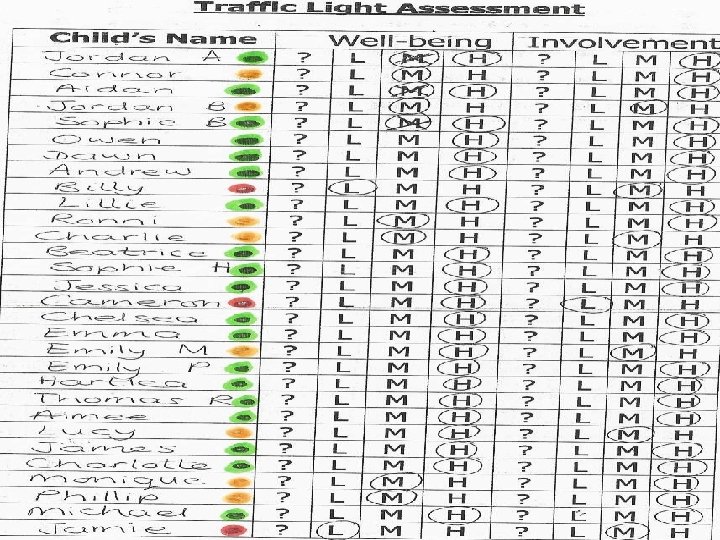 Traffic Light Assessment
Child's Name Well-being Involvement
Jordan A ? L M H ? L M H
Connor ? L M H ? L M H
Aidan ? L M H ? L M H
Jordan B ? L M H ? L M H
Sophie B ? L M H ? L M H
Owen ? L M H ? L M H
Dawn ? L M H ? L M H
Andrew ? L M H ? L M H
Billy ? L M H ? L M H
Lillie ? L M H ? L M H
Ronni ? L M H ? L M H
Charlie ? L M H ? L M H
Beatrice ? L M H ? L M H
Sophie H ? L M H ? L M H
Jessica ? L M H ? L M H
Cameron ? L M H ? L M H
Chelsea ? L M H ? L M H
Emma ? L M H ? L M H
Emily M ? L M H ? L M H
Emily P ? L M H ? L M H
? L M H ? L M H
Thomas R ? L M H ? L M H
Aimee ? L M H ? L M H
Lucy ? L M H ? L M H
James ? L M H ? L M H
Charlotte ? L M H ? L M H
Monique ? L M H ? L M H
Phillip ? L M H ? L M H
Michael ? L M H ? L M H
Jamie ? L M H ? L M H